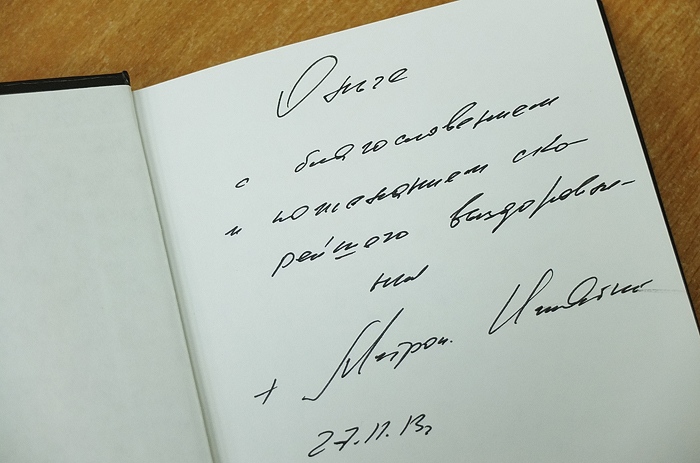 Ольге
с благословением
и пожеланием ско-
рейшего выздоровле-
ния
+ Митроп.
27.11.13г